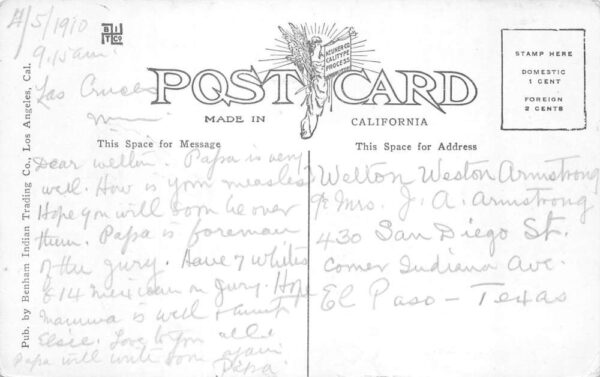 4/5/1910
9.15am.
Las Cruces
BITCo
POST CARD
NEUNER CO.
CALITYPE
PROCESS
MADE IN CALIFORNIA
STAMP HERE
DOMESTIC
1 CENT
FOREIGN
2 CENTS
This Space for Message
This Space for Address
Dear Welton. Papa is very
well. How is your measles?
Hope you will soon be over
them. Papa is foreman
of the jury. Have 7 whites
& 14 Mexican on jury. Hope
mamma is well &
Elsie. Love to you all
Papa will write soon again
Papa.
Welton Weston Armstrong
c/o Mrs. J. A. Armstrong
430 San Diego St.
Corner Indiana Ave.
El Paso - Texas
Pub. by Benham Indian Trading Co., Los Angeles, Cal.